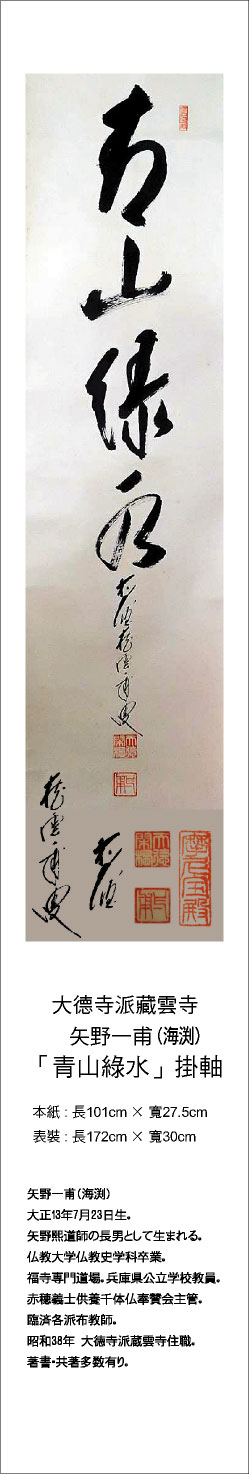 青山緑水
大德寺派藏雲寺
矢野一甫(海渕)
「青山綠水」掛軸
本紙：長101cm × 寬27.5cm
表裝：長172cm × 寬30cm
矢野一甫(海渕)
大正13年7月23日生。
矢野熙道師の長男として生まれる。
仏教大学仏教史学科卒業。
福寺専門道場。兵庫県公立学校教員。
赤穂義士供養千体仏奉賛会主管。
臨済各派布教師。
昭和38年 大徳寺派蔵雲寺住職。
著書・共著多数有り。